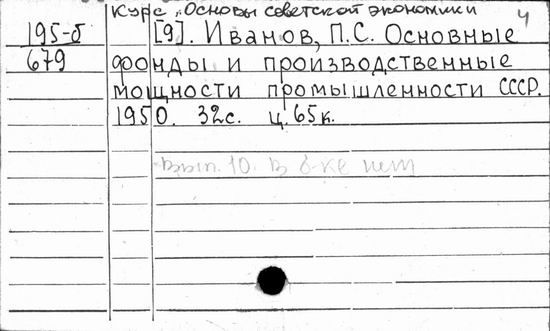 Курс „Основы советской экономики
4
195-б [9]. Иванов, П.С. Основные
679 фонды и производственные
мощности промышленности СССР.
1950. 32с. ц. 65к.
вып. 10. в б-ке нет